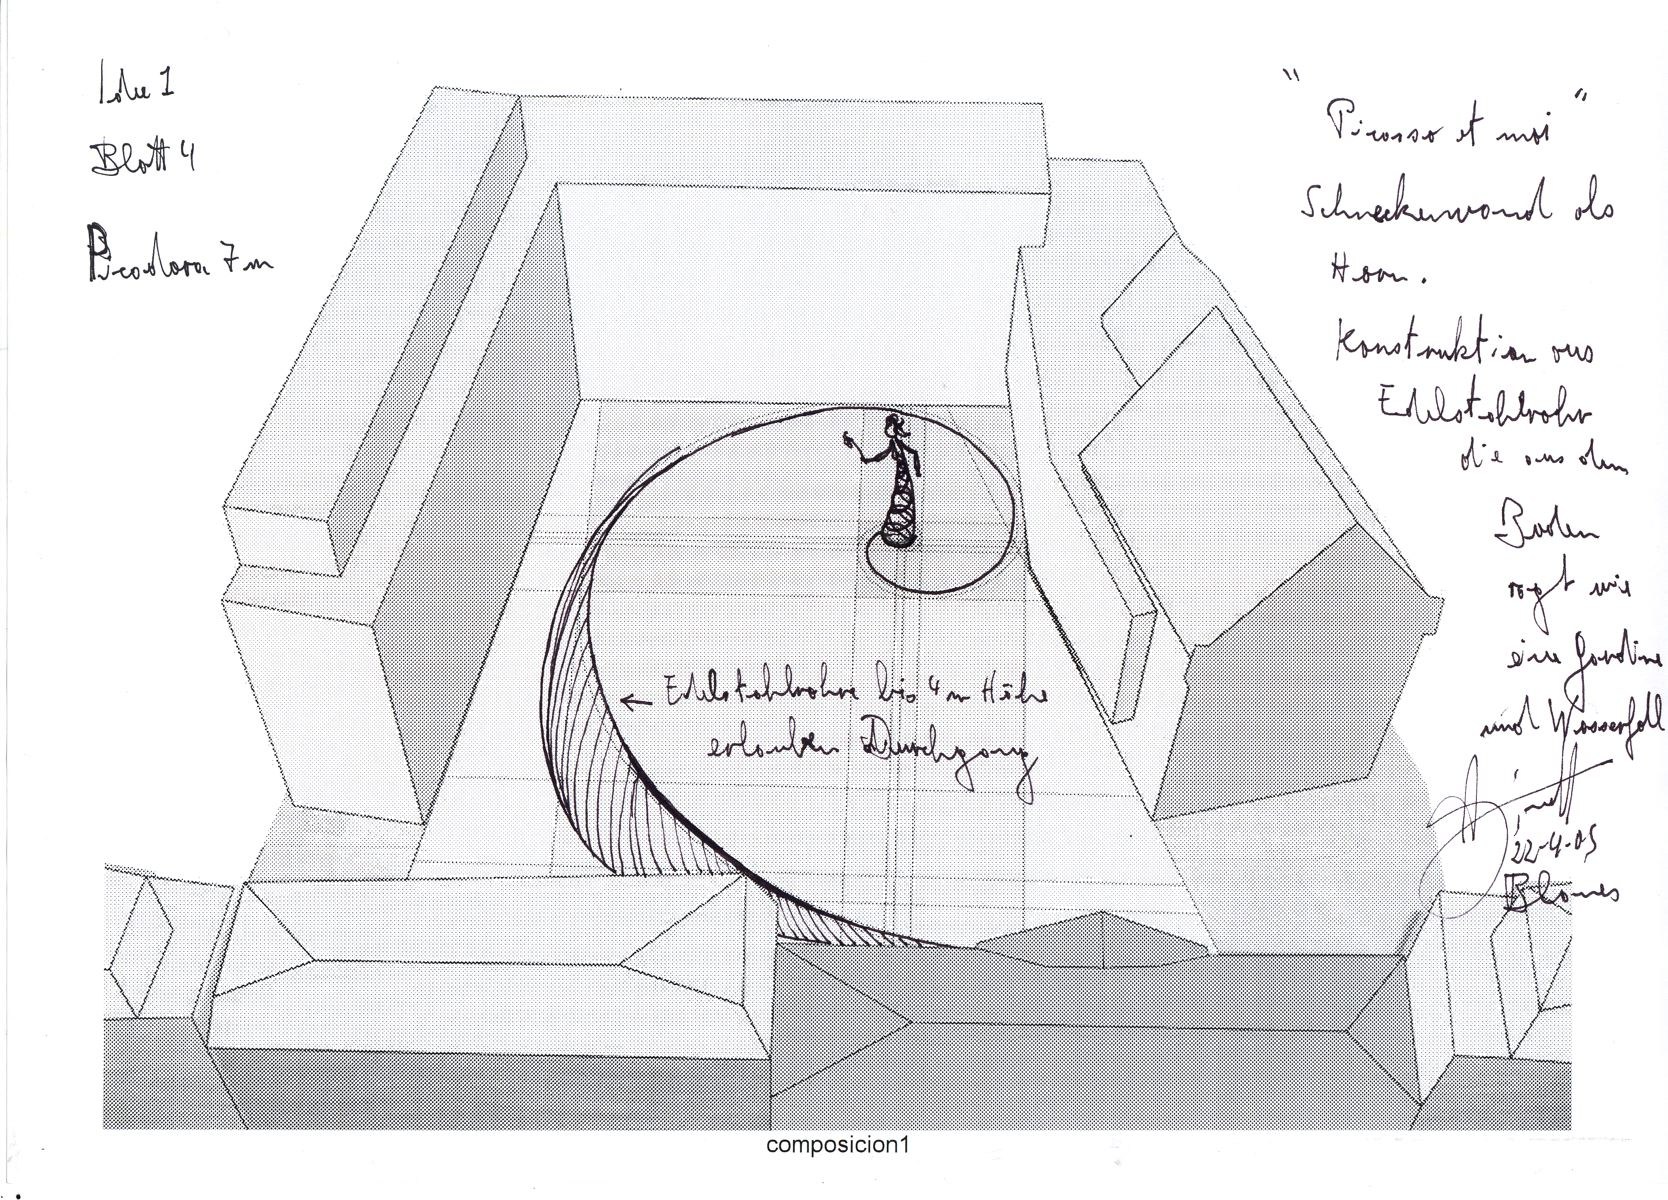 Idee 1
Blatt 4
Picadora 7m
" Picasso et moi "
Schneckenwand als
Horn.
Konstruktion aus
Edelstahlrohr
die aus dem
Boden
ragt wie
eine Gardine
und Wasserfall
22-4-05
Blanes
← Edelstahlrohre bis 4m Höhe
erlauben Durchgang
composicion1